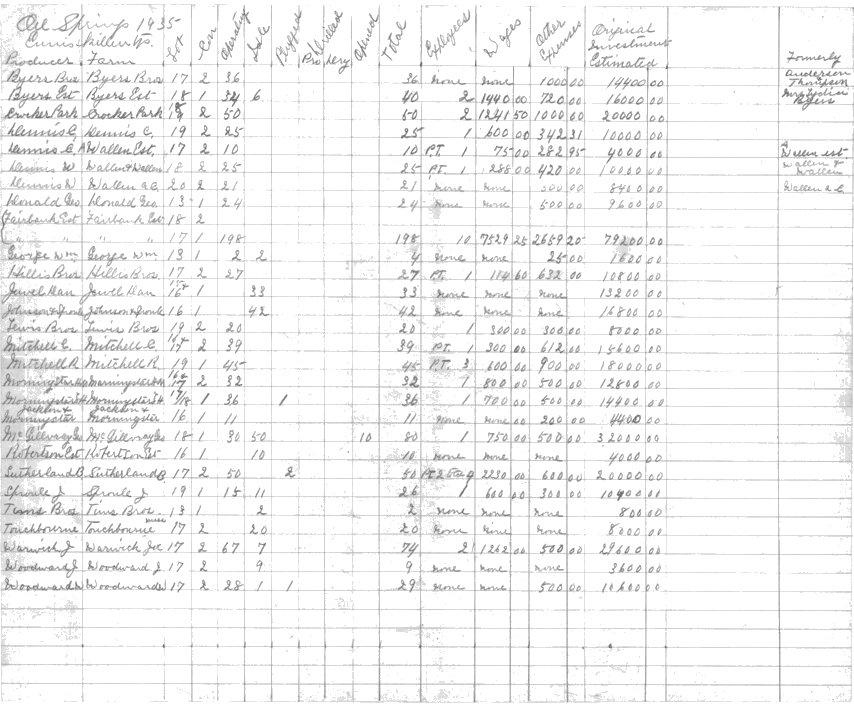 Oil Springs 1935
Enniskillen Tp.
Producer Farm Lot Con Operating Idle Plugged Drilled Opened Total Employees Wages Other Expenses Original Investment Estimated Formerly
Byers Bros Byers Bros 17 2 36 36 none none 1000 00 14400 00 Anderson Thompson
Byers Est Byers Est 18 1 34 6 40 2 1440 00 720 00 16000 00 Mrs Lydia Byers
Crocker Park Crocker Park 18 19 2 50 50 2 1241 50 1000 00 20000 00
Dennis C, Dennis C, 19 2 25 25 1 600 00 342 31 10000 00
Dennis C, A Wallen Est, 17 2 10 10 P.T. 1 75 00 282 95 4000 00 Wallen est
Dennis W Wallen & Wallen 18 2 25 25 P.T. 1 288 00 420 00 10000 00 Wallen & Wallen
Dennis W Wallen A.C. 20 2 21 21 none none 00 8400 00 Wallen A C
Donald Geo Donald Geo. 13 1 24 24 none none 500 00 9600 00
Fairbank Est Fairbank Est 18 2
" " " " 17 1 198 198 10 7529 25 2659 20 79200 00
George Wm George Wm 13 1 2 2 4 none none 25 00 1600 00
Hillis Bros Hillis Bros. 17 2 27 27 P.T. 1 114 60 632 00 10800 00
Jewel Han Jewell Han 16 1 33 33 none none none 13200 00
Johnson & Sproule Johnson & Sproule 16 1 42 42 none none none 16800 00
Lewis Bros Lewis Bros 19 2 20 20 1 300 00 300 00 8000 00
Mitchell C. Mitchell C 16 & 17 2 39 39 P.T. 1 300 00 612 00 15600 00
Mitchell R Mitchell R. 19 1 45 45 P.T. 3 600 00 900 00 18000 00
Morningstar Morningstar 16 & 17 2 32 32 1 800 00 500 00 12800 00
Morningstar H. Morningstar H. 17/18 1 36 1 36 1 700 00 500 00 14400 00
Jackson & Morningstar Jackson & Morningstar 16 1 11 11 none none 200 00 4400 00
McGillvray Geo McGillvray Geo 18 1 30 50 10 80 1 750 00 500 00 32000 00
Robertson Est Robertson Est 16 1 10 10 none none none 4000 00
Sutherland D, Sutherland D 17 2 50 2 50 2230 00 600 00 20000 00
Sproule J Sproule J 19 1 15 11 26 1 600 00 300 00 10400 00
Tims Bros Tims Bros. 13 1 2 2 none none none 800 00
Touchbourne Touchbourne Miss 17 2 20 20 none none none 8000 00
Warwick J Warwick Joe 17 2 67 7 74 2 1262 00 500 00 29600 00
Woodward J Woodward J. 17 2 9 9 none none none 3600 00
Woodward W Woodward W 17 2 28 1 1 29 none none 500 00 10600 00